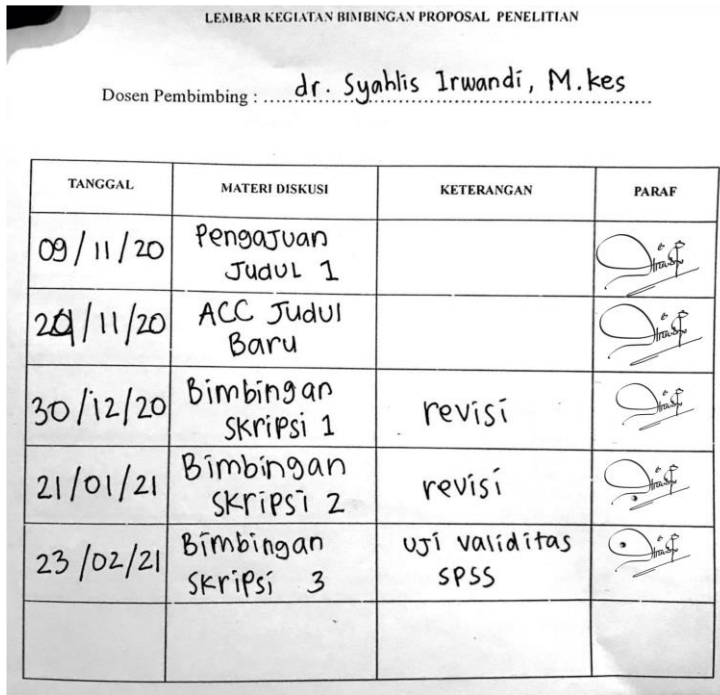 LEMBAR KEGIATAN BIMBINGAN PROPOSAL PENELITIAN
Dosen Pembimbing : dr. Syahlis Irwandi, M.kes
TANGGAL MATERI DISKUSI KETERANGAN PARAF
09/11/20 Pengajuan
Judul 1
/11/20 ACC Judul
Baru
30/12/20 Bimbingan
Skripsi 1 revisi
21/01/21 Bimbingan
Skripsi 2 revisi
23/02/21 Bimbingan uji validitas
Skripsi 3 SPSS